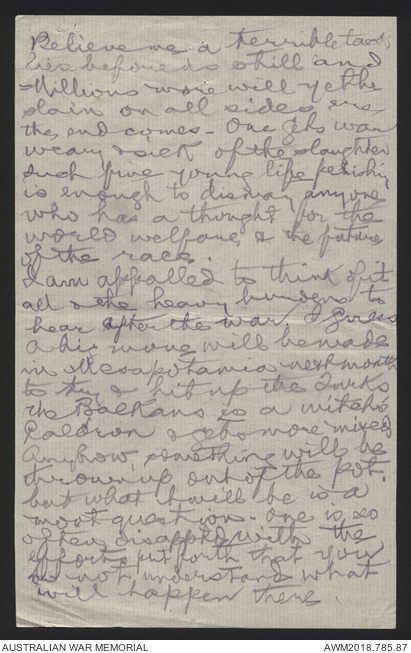 Believe me a terrible task
lies before us still and
Millions more will yet be
slain on all sides ere
the end comes - One gets war
weary & sick of the slaughter
such fine young life perishing
is enough to dismay anyone
who has a thought for the
world welfare, & the future
of the race.
I am appalled to think of it
all & the heavy burdens to
bear after the war I guess
a big move will be made
in Mesopotamia next month
to try & hit up the Turks
The Balkans is a witch's
Caldron & gets more mixed
Anyhow, something will be
thrown up out of the pot.
but what it will be is a
moot question. One is so
often with the
efforts put forth that you
do not understand what
will happen there.
AUSTRALIAN WAR MEMORIAL
AWM2018.785.87